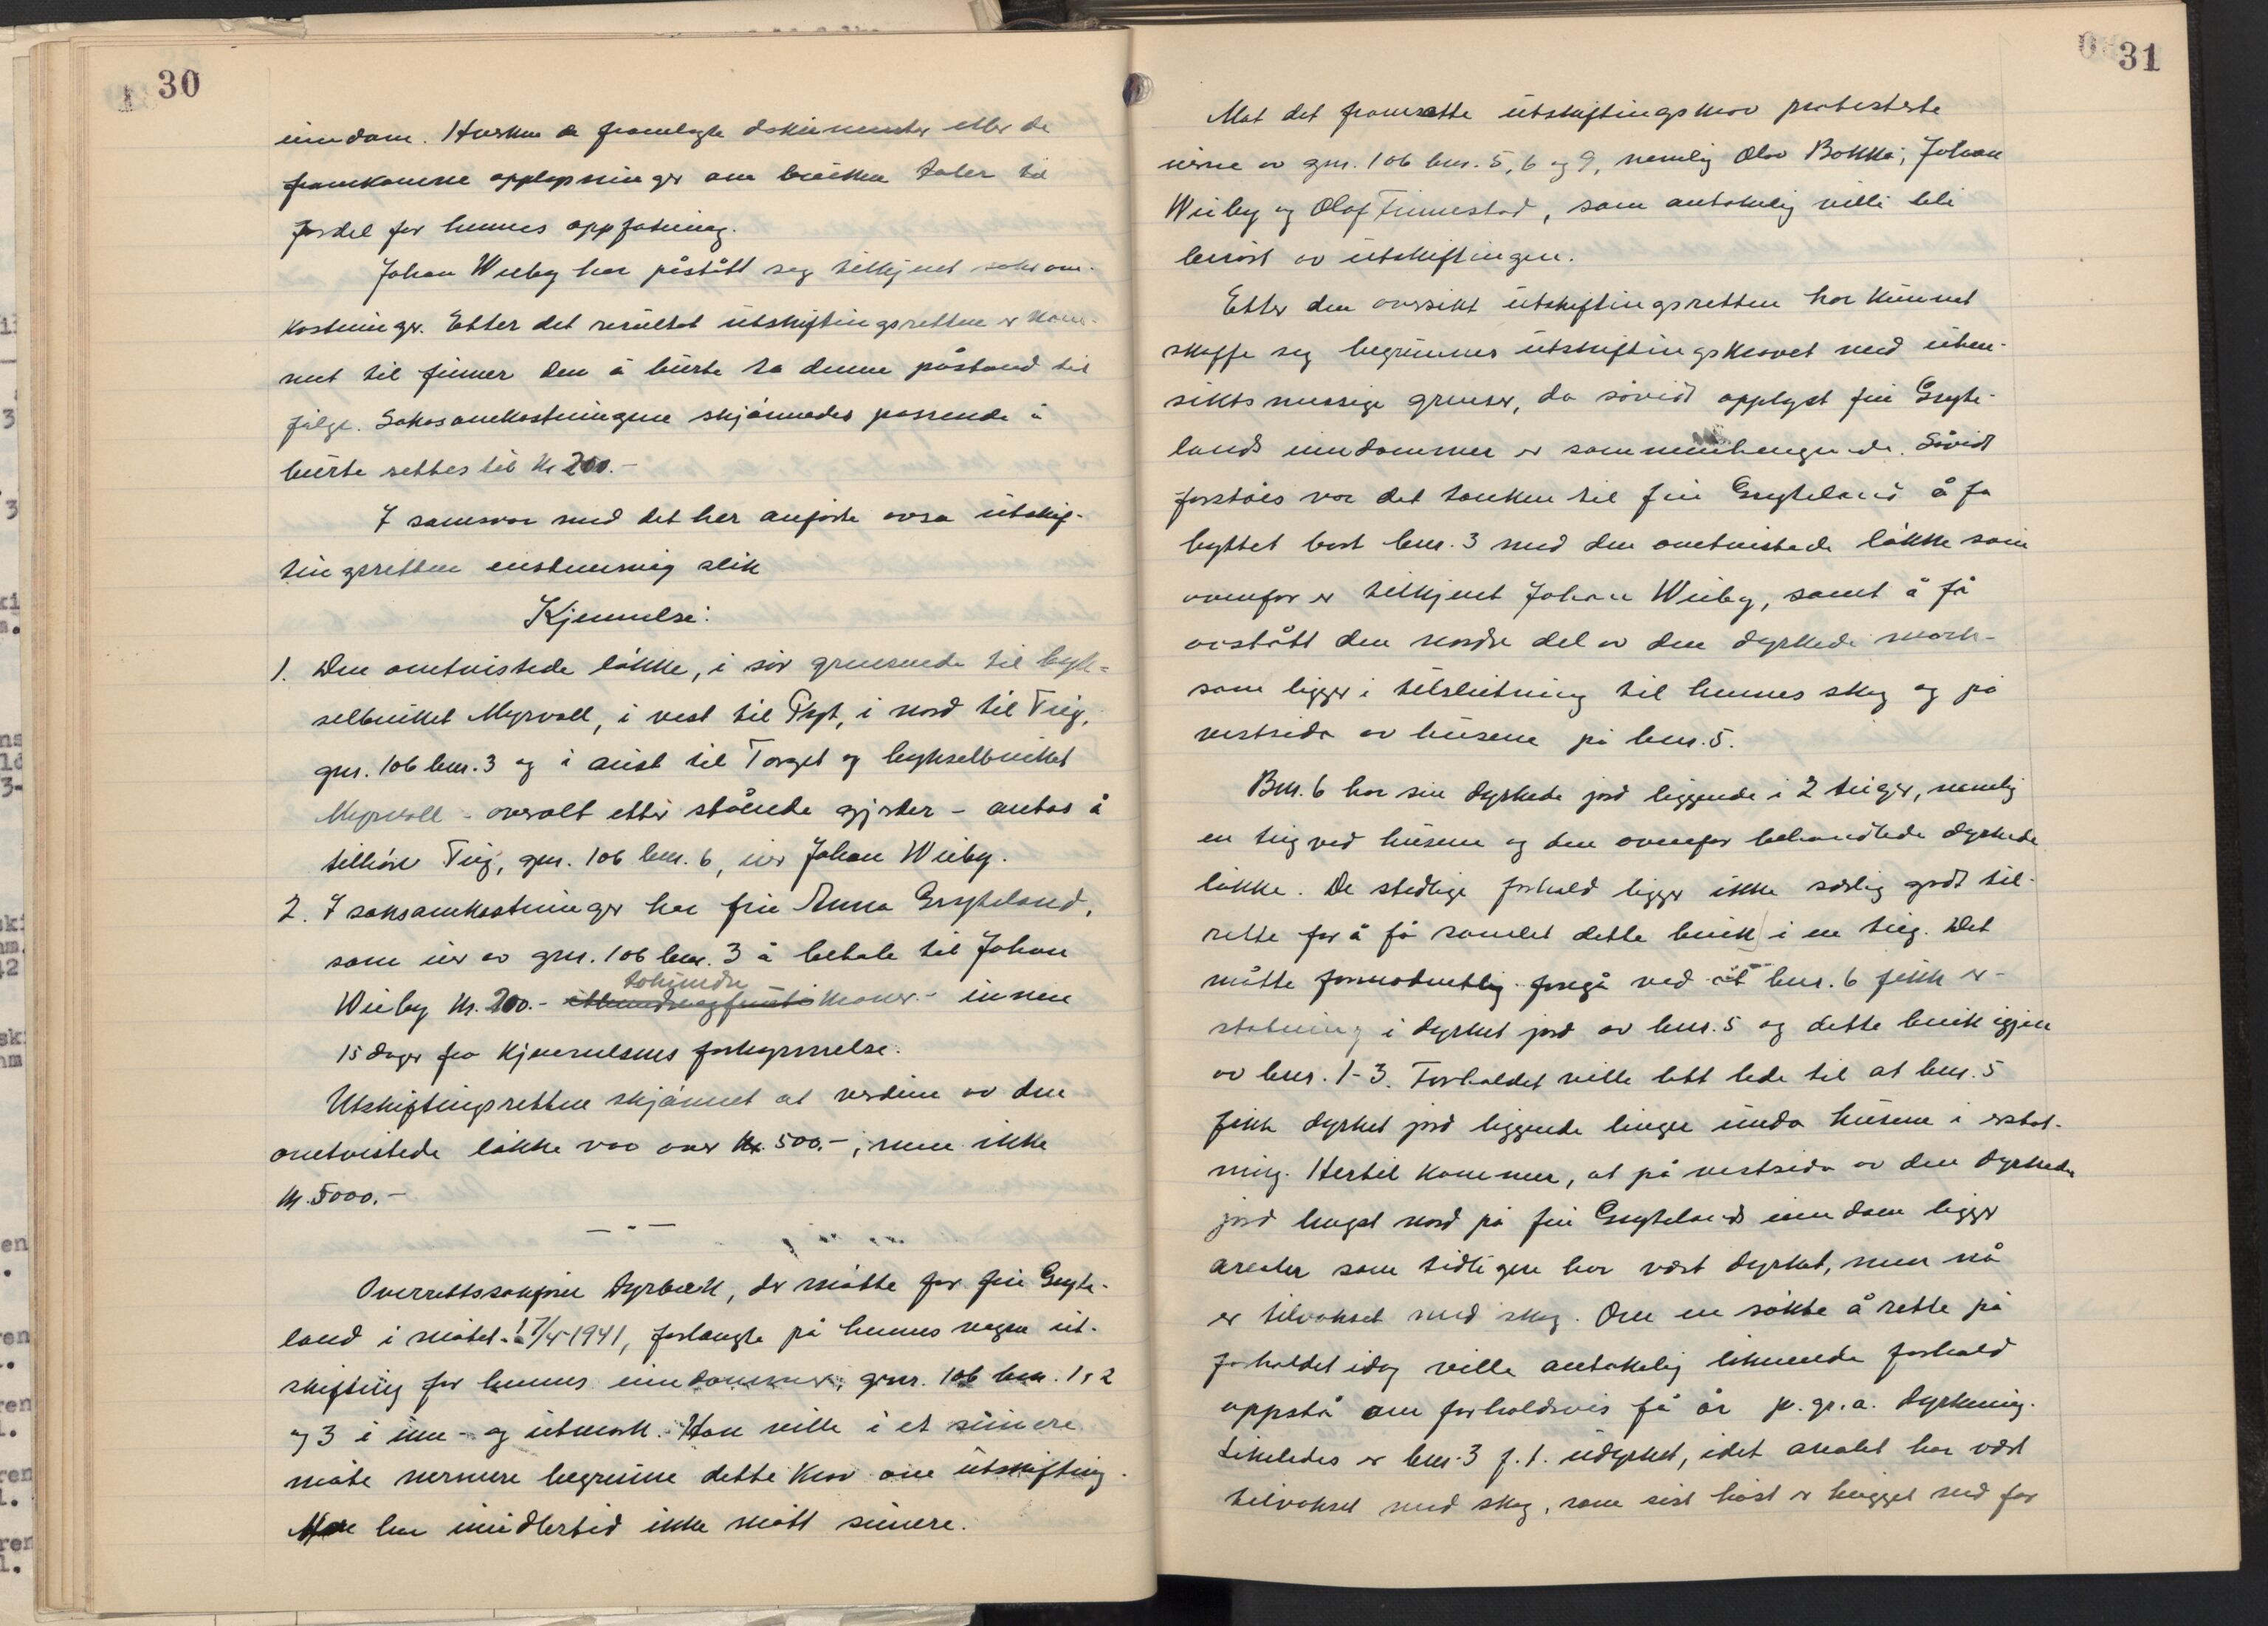 30
eiendom. Hverken de framlagte dokumenter eller de
framkomne opplysninger om bruken taler til
fordel for hennes oppfatning.
Johan Wiuby har påstått seg tilkjent saksom-
kostninger. Etter det resultat utskiftingsretten er kom-
met til finner den å burte ta denne påstand til
følge. Saksomkostningene skjönnedes passende å
burte settes til kr 200.-
I samsvar med det her anförte avsa utskif-
tingsretten enstemmig slik
Kjennelse:
1. Den omtvistede lökke, i sör grensende til byk-
selbruket Myrvoll, i vest til Plyt, i nord til Tuig,
gnr. 106 bnr. 3 og i aust til Torget og bykselbruket
Myrvoll - overalt etter stående gjerder - antas å
tilhöre Tuig, gnr. 106 bnr. 6, eier Johan Wiuby.
2. I saksomkostninger har fru Anna Gryteland,
som eier av gnr. 106 bnr. 3 å betale til Johan
tohundre
Wiuby kr. 200.- etthundreogfemti kroner - innen
15 dager fra kjennelsens forkynnelse.
Utskiftingsretten skjönnet at verdien av den
omtvistede lökke var over kr. 500.-, men ikke
kr. 5000.-
Overrettssakförer Dyrbæk, der mötte for fru Gryte-
land i mötet 17/4 1941, forlangte på hennes vegne ut-
skifting for hennes eiendommer, gnr. 106 bnr. 1, 2
og 3 i inn- og utmark. Han ville i et seinere
möte nermere begrunne dette krav om utskifting.
Han har imidlertid ikke mött seinere.
31
Mot det framsatte utskiftingskrav protesterte
eierne av gnr. 106 bnr. 5, 6 og 9, nemlig Olav Bakka, Johan
Wiuby og Olaf Finnestad, som antakelig ville bli
berört av utskiftingen.
Etter den oversikt utskiftingsretten har kunnet
skaffe seg begrunnes utskiftingskravet med uhen-
siktsmessige grenser, da såvidt opplyst fru Gryte-
lands eiendommer er sammenhengende. Såvidt
forståes var det tanken til fru Gryteland å få
byttet bort bnr. 3 med den omtvistede lökke som
ovenfor er tilkjent Johan Wiuby, samt å få
avstått den nordre del av den dyrkede mark
som ligger i tilslutning til hennes skog og på
vestsida av husene på bnr. 5.
Bnr. 6 har sin dyrkede jord liggende i 2 teiger, nemlig
en teig ved husene og den ovenfor behandlede dyrkede
lökke. De stedlige forhold ligger ikke særlig godt til-
rette for å få samlet dette bruk i en teig. Det
måtte formodentlig foregå ved at bnr. 6 fikk er-
statning i dyrket jord av bnr. 5 og dette bruk igjen
av bnr. 1-3. Forholdet ville lett lede til at bnr. 5
fikk dyrket jord liggende lenger unda husene i erstat-
ning. Hertil kommer, at på vestsida av den dyrkede
jord lengst nord på fru Grytelands eiendom ligger
arealer som tidligere har vært dyrket, men nå
er tilvokset med skog. Om en sökte å rette på
forholdet idag ville antakelig liknende forhold
oppstå om forholdsvis få år p. gr. a. dyrkning.
Likeledes er bnr. 3 f. t. udyrket, idet arealet har vært
tilvokset med skog, som sist höst er hugget ned for